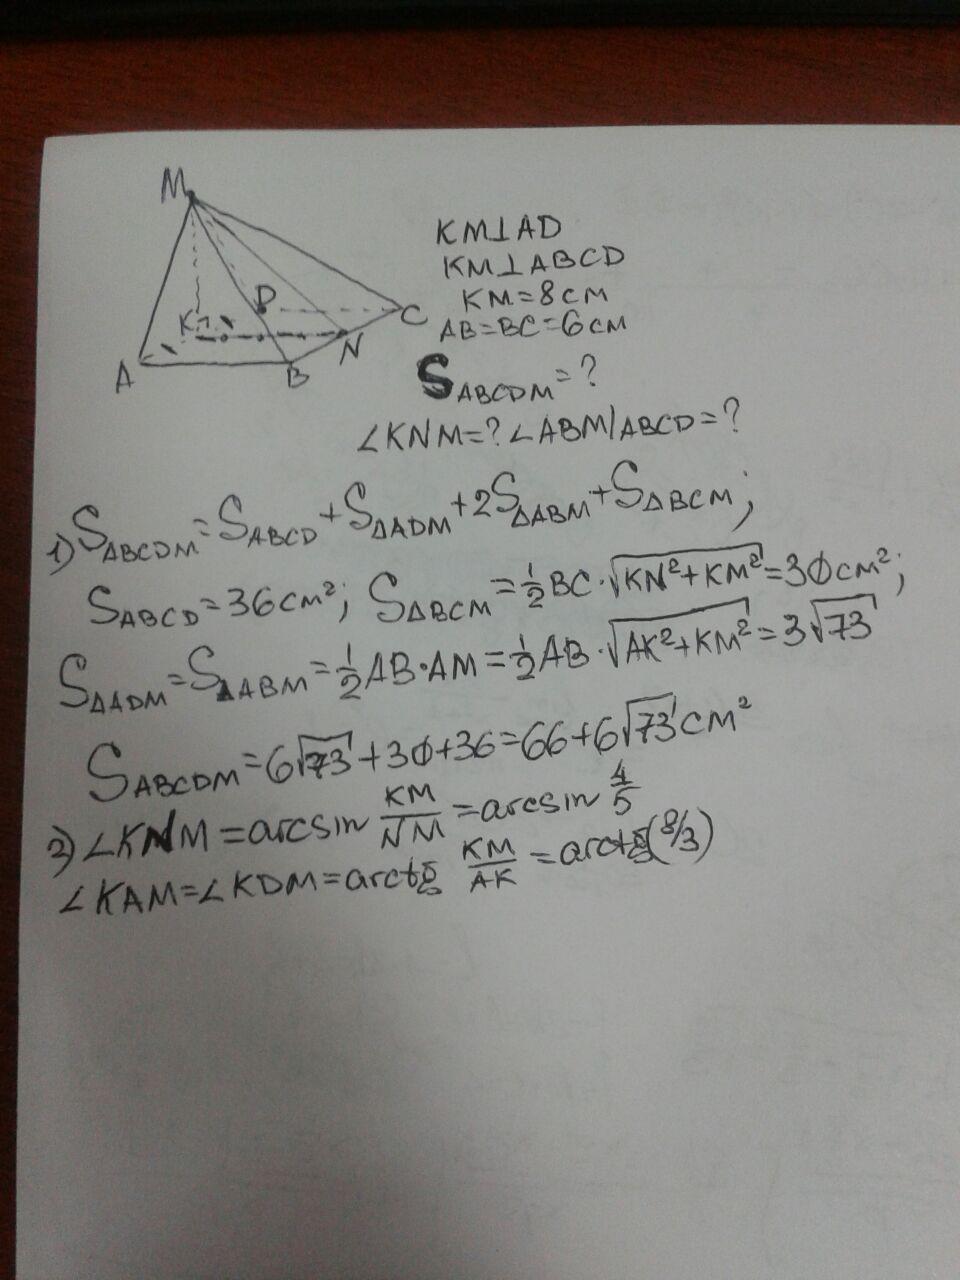 M
K
D
C
A
B
N
KM⊥AD
KM⊥ABCD
KM=8см
AB=BC=6см
S_ABCDM=?
∠KNM=? ∠ABM/ABCD=?
1) S_ABCDM=S_ABCD+S_ΔADM+2S_ΔABM+S_ΔBCM;
S_ABCD=36см²; S_ΔBCM=1/2BC·√(KN²+KM²)=30см²;
S_ΔADM=S_ΔABM=1/2AB·AM=1/2AB·√(AK²+KM²)=3√73
S_ABCDM=6√73+30+36=66+6√73см²
2) ∠KNM=arcsin KM/NM=arcsin 4/5
∠KAM=∠KDM=arctg KM/AK=arctg(8/3)